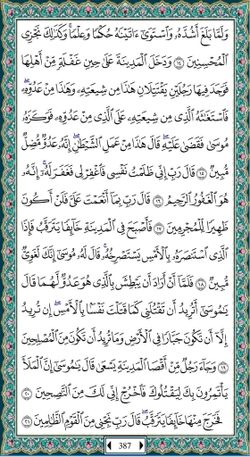 وَلَمَّا بَلَغَ أَشُدَّهُۥ وَٱسْتَوَىٰٓ ءَاتَيْنَٰهُ حُكْمًا وَعِلْمًا ۚ وَكَذَٰلِكَ نَجْزِى
ٱلْمُحْسِنِينَ ١٤ وَدَخَلَ ٱلْمَدِينَةَ عَلَىٰ حِينِ غَفْلَةٍ مِّنْ أَهْلِهَا
فَوَجَدَ فِيهَا رَجُلَيْنِ يَقْتَتِلَانِ هَٰذَا مِن شِيعَتِهِۦ وَهَٰذَا مِنْ عَدُوِّهِۦ ۖ
فَٱسْتَغَٰثَهُ ٱلَّذِى مِن شِيعَتِهِۦ عَلَى ٱلَّذِى مِنْ عَدُوِّهِۦ فَوَكَزَهُۥ
مُوسَىٰ فَقَضَىٰ عَلَيْهِ ۖ قَالَ هَٰذَا مِنْ عَمَلِ ٱلشَّيْطَٰنِ ۖ إِنَّهُۥ عَدُوٌّ مُّضِلٌّ
مُّبِينٌ ١٥ قَالَ رَبِّ إِنِّى ظَلَمْتُ نَفْسِى فَٱغْفِرْ لِى فَغَفَرَ لَهُۥٓ ۚ إِنَّهُۥ
هُوَ ٱلْغَفُورُ ٱلرَّحِيمُ ١٦ قَالَ رَبِّ بِمَآ أَنْعَمْتَ عَلَىَّ فَلَنْ أَكُونَ
ظَهِيرًا لِّلْمُجْرِمِينَ ١٧ فَأَصْبَحَ فِى ٱلْمَدِينَةِ خَآئِفًا يَتَرَقَّبُ فَإِذَا
ٱلَّذِى ٱسْتَنصَرَهُۥ بِٱلْأَمْسِ يَسْتَصْرِخُهُۥ ۚ قَالَ لَهُۥ مُوسَىٰٓ إِنَّكَ لَغَوِىٌّ
مُّبِينٌ ١٨ فَلَمَّآ أَنْ أَرَادَ أَن يَبْطِشَ بِٱلَّذِى هُوَ عَدُوٌّ لَّهُمَا قَالَ
يَٰمُوسَىٰٓ أَتُرِيدُ أَن تَقْتُلَنِى كَمَا قَتَلْتَ نَفْسًۢا بِٱلْأَمْسِ ۖ إِن تُرِيدُ
إِلَّآ أَن تَكُونَ جَبَّارًا فِى ٱلْأَرْضِ وَمَا تُرِيدُ أَن تَكُونَ مِنَ ٱلْمُصْلِحِينَ
١٩ وَجَآءَ رَجُلٌ مِّنْ أَقْصَا ٱلْمَدِينَةِ يَسْعَىٰ قَالَ يَٰمُوسَىٰٓ إِنَّ ٱلْمَلَأَ
يَأْتَمِرُونَ بِكَ لِيَقْتُلُوكَ فَٱخْرُجْ إِنِّى لَكَ مِنَ ٱلنَّٰصِحِينَ ٢٠
فَخَرَجَ مِنْهَا خَآئِفًا يَتَرَقَّبُ ۖ قَالَ رَبِّ نَجِّنِى مِنَ ٱلْقَوْمِ ٱلظَّٰلِمِينَ ٢١
387